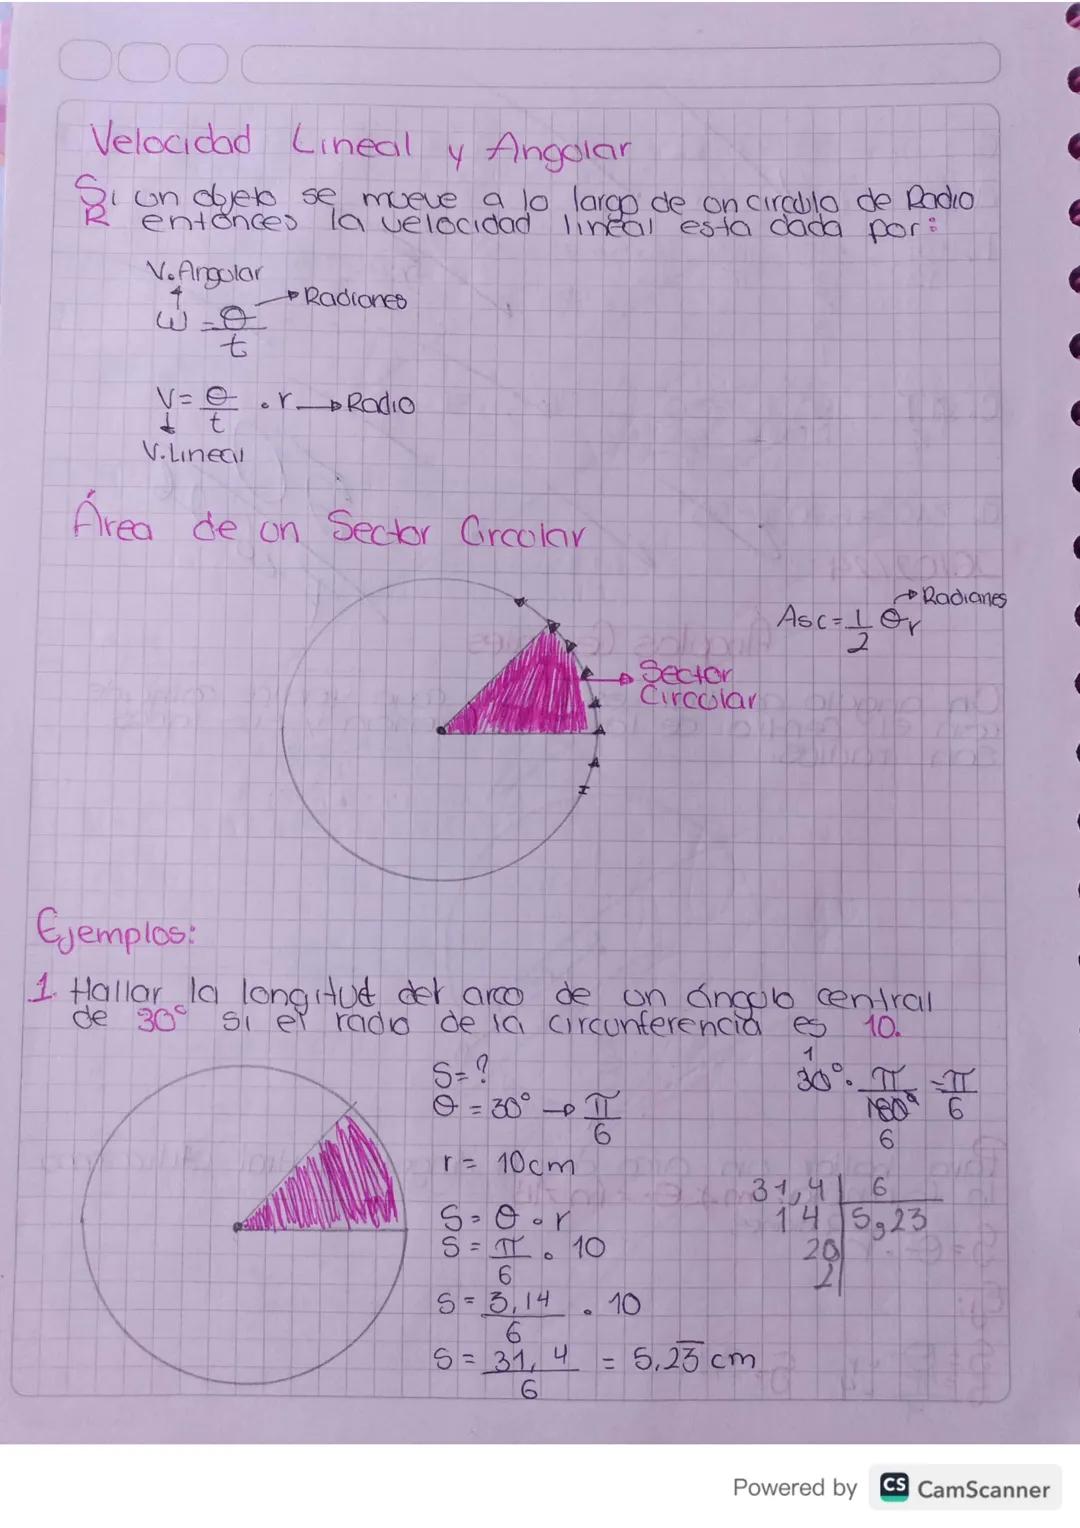 Velocidad Lineal y Angular
Si un objeto se mueve a lo largo de un circulo de Radio
R entonces la velocidad lineal esta dada por:
V. Angular
ω = θ/t → Radianes
V = θ/t . r → Radio
V. Lineal
Área de un Sector Circular
Asc = 1/2 θr → Radianes
Sector
Circular
Ejemplos:
1. Hallar la longitud del arco de un ángulo central
de 30° si el radio de la circunferencia es 10.
S = ?
θ = 30° → π/6
r = 10cm
S = θ . r
S = π/6 . 10
S = 3,14/6 . 10
S = 31,4/6 = 5,23 cm
1
30° . π/180° = π/6
6
31,4 | 6
14 | 5,23
20
2
Powered by CS CamScanner